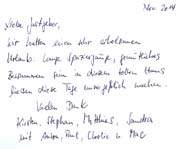 Nov. 2014
Liebe Gastgeber,
wir hatten einen sehr erholsamen
Urlaub. Lange Spaziergänge, gemütliches
Beisammen sein in diesem tollen Haus
ließen diese Tage unvergeßlich machen.
Vielen Dank
Kirsten, Stephan, Matthias, Sandra
mit Anton, Paul, Charlie u. Mac